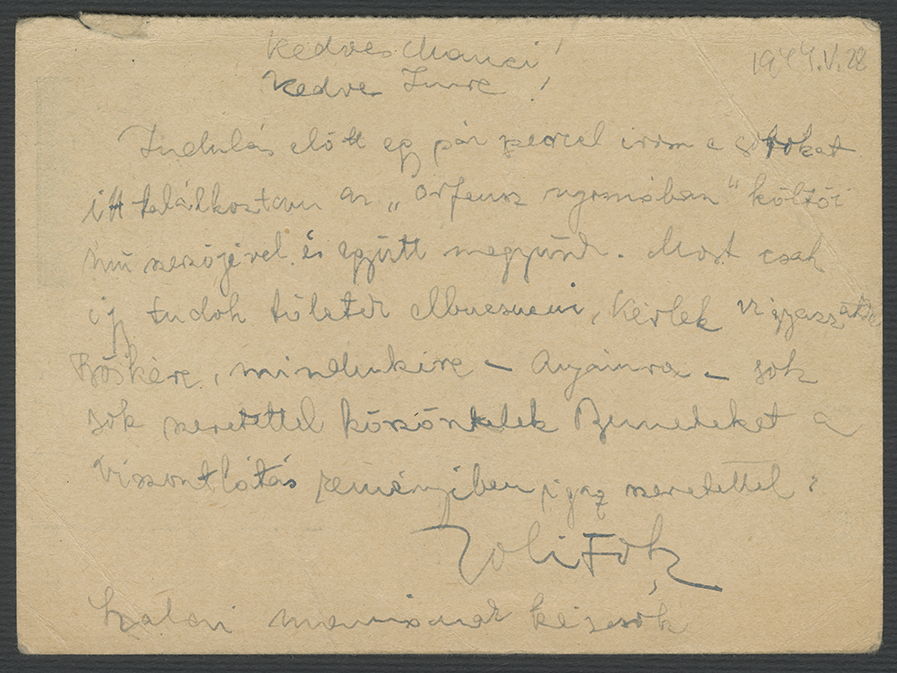 Kedves Manci!
1944.V.28
Kedves Imre!
Indulás előtt egy pár perccel irom e sorokat
itt találkoztam az „Orfeusz nyomában" költői
mű szerzőjével és együtt megyünk. Most csak
igy tudok tőletek elbucsuzni, kérlek vigyázzatok
Böskére, mindenkire – Anyámra – sok
sok szeretettel köszöntelek Benneteket a
viszontlátás reményiben igaz szeretettel:
Zoli
maminak kézcsók